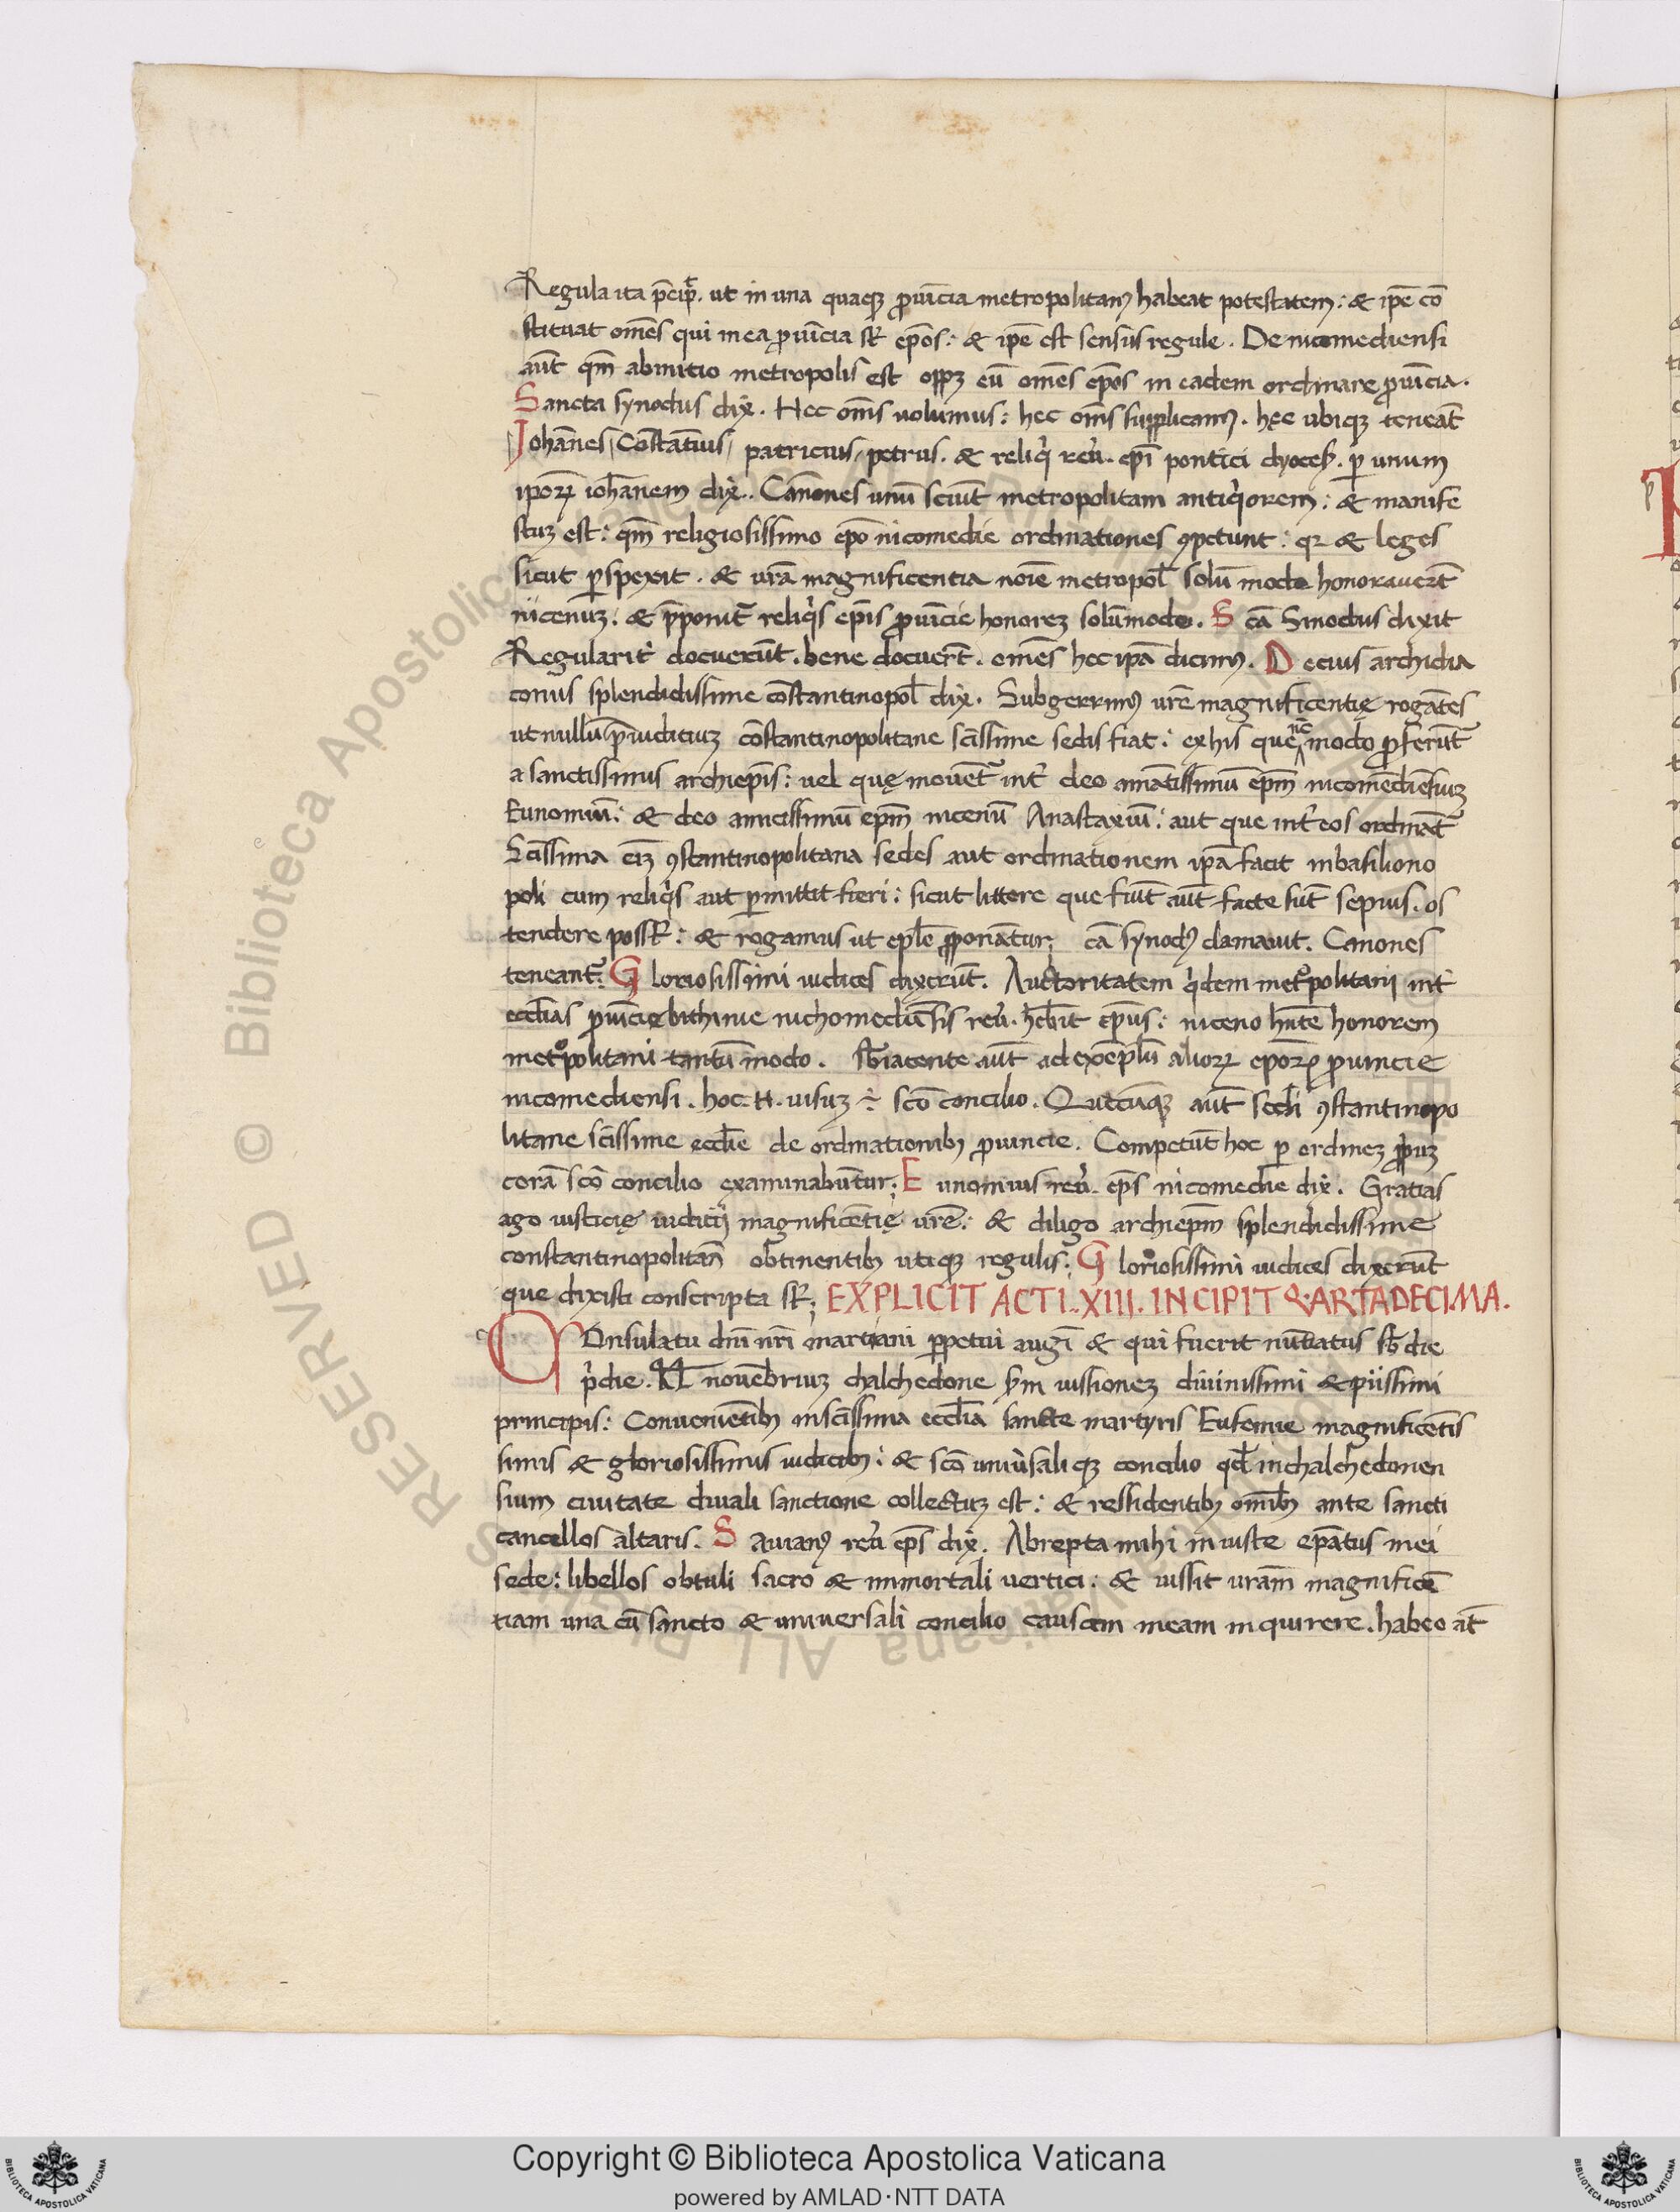 Regula ita p̄cip̄. ut in una quaqꝫ ꝓuīcia metropolitanꝰ habeat potestatem: & ip̄e cō
stituat om̄es qui in ea ꝓuīcia st̄ ep̄os: & ip̄e est sensus regule. De nicomediensi
aūt qm̄ ab initio metropolis est opꝫ eū om̄es ep̄os in eadem ordinare ꝓuīcia.
Sancta synodus dix̄. Hec om̄s uolumus: hec om̄s supplicamꝰ. hęc ubiqꝫ teneāt
Iohān̄es, Cōstātius, patricius, petrus. & reliqͥ reū. ep̄i pontici dyoces̄. ꝑ unum
ip̄oꝝ ioh̄anem dix̄. Canones unū sciūt metropolitam antiqͥorem: & manife
stuꝫ est: qm̄ religiosissimo ep̄o nicomedie ordinationes ꝯpetunt: qꝛ & leges
sicut ꝑspexit. & ur̄a magnificentia noīe metropol̄ solū modo honorauert̄
nicenuꝫ. & p̄ponit̄ reliqͥs ep̄is ꝓuīcie honoreꝫ solūmodo. S cā Sinodus dixit
Regularit̕ docuerūt. bene docuert̄. om̄es hec ip̄a dicimꝰ. D ecius archidia
conus splendidissime cōstantinopol̄ dix̄. Subgerrimꝰ ur̄e magnificentię rogātes
ut nullū p̄iudiciuꝫ cōstantinopolitane sc̄issime sedis fiat: ex his que nc̄ modo ꝓferūt̄
a sanctissimis archiep̄is: uel quę mouēt̄ int̕ deo amātissimū ep̄m nicomēdiēsiuꝫ
Eunomiū: & deo amicissimū ep̄m nicenū Anastaxiū: aut que int̕ eos ordināt̄
Sc̄issima eīꝫ ꝯstantinopolitana sedes aut ordinationem ip̄a facit in basiliono
poli cum reliqͥs aut ꝑmittit fieri: sicut littere que fiūt aūt facte sūt sepius. os
tendere poss̄t: & rogamus ut ep̄le ꝓponātur; cā synodꝰ clamauit. Canones
teneant̄. G loriosissimi iudices dixerūt. Auctoritatem qͥdem metͦpolitani int̕
eccl̄ias ꝓuīcię bithinie nichomediēsis reū. hēbit ep̄us: niceno hn̄te honorem
metͦpolitani tantū modo. sb̄iacente aūt ad exēplū alioꝝ ep̄oꝝ ꝓuincie
nicomediensi. hoc .n. uisuꝫ ÷ sc̄o concilio. Quecūqꝫ aūt sedi ꝯstantinopo
litane sc̄issime eccl̄ie de ordinationibꝰ ꝓuincie. Competūt hoc ꝑ ordineꝫ ꝓpiuꝫ
corā sc̄o concilio examinabūtur; E unomius reū. ep̄s nicomedie dix̄. Gratias
ago iusticię iudicij magnificētię ur̄e: & diligo archiep̄m splendidissime
constantinopolitan̄ obtinentibꝰ utiqꝫ regulis; G loriosissimi iudices dixerūt
que dixisti conscripta st̄; EXPLICIT ACTI. XIII. INCIPIT QARTADECIMA.
COnsulatu dn̄i nr̄i martiani ꝑpetui augꝰ̄ & qui fuerit nūtiatus sb̄ die
pͥdie. Kl̄ nouēbriuꝫ chalchedone sm̄ iussioneꝫ diuinissimi & piissimi
principis: Conuenientibꝰ in sc̄issima eccl̄ia sancte martyris Eufemie magnificētis
simis & gloriosissimis iudicibꝰ: & sc̄o uniūsali qꝫ concilio qd̄ in chalchedonen
sium ciuitate diuali sanctione collectuꝫ est: & ressidentibꝰ om̄ibꝰ ante sancti
cancellos altaris. S auianꝰ reū ep̄s dix̄. Abrepta mihi iniuste ep̄atus mei
sede: libellos obtuli sacro & immortali uertici: & iussit ur̄am magnificē
tiam una cū sancto & uniuersali concilio causam meam inquirere. habeo at̄
Copyright © Biblioteca Apostolica Vaticana
powered by AMLAD·NTT DATA